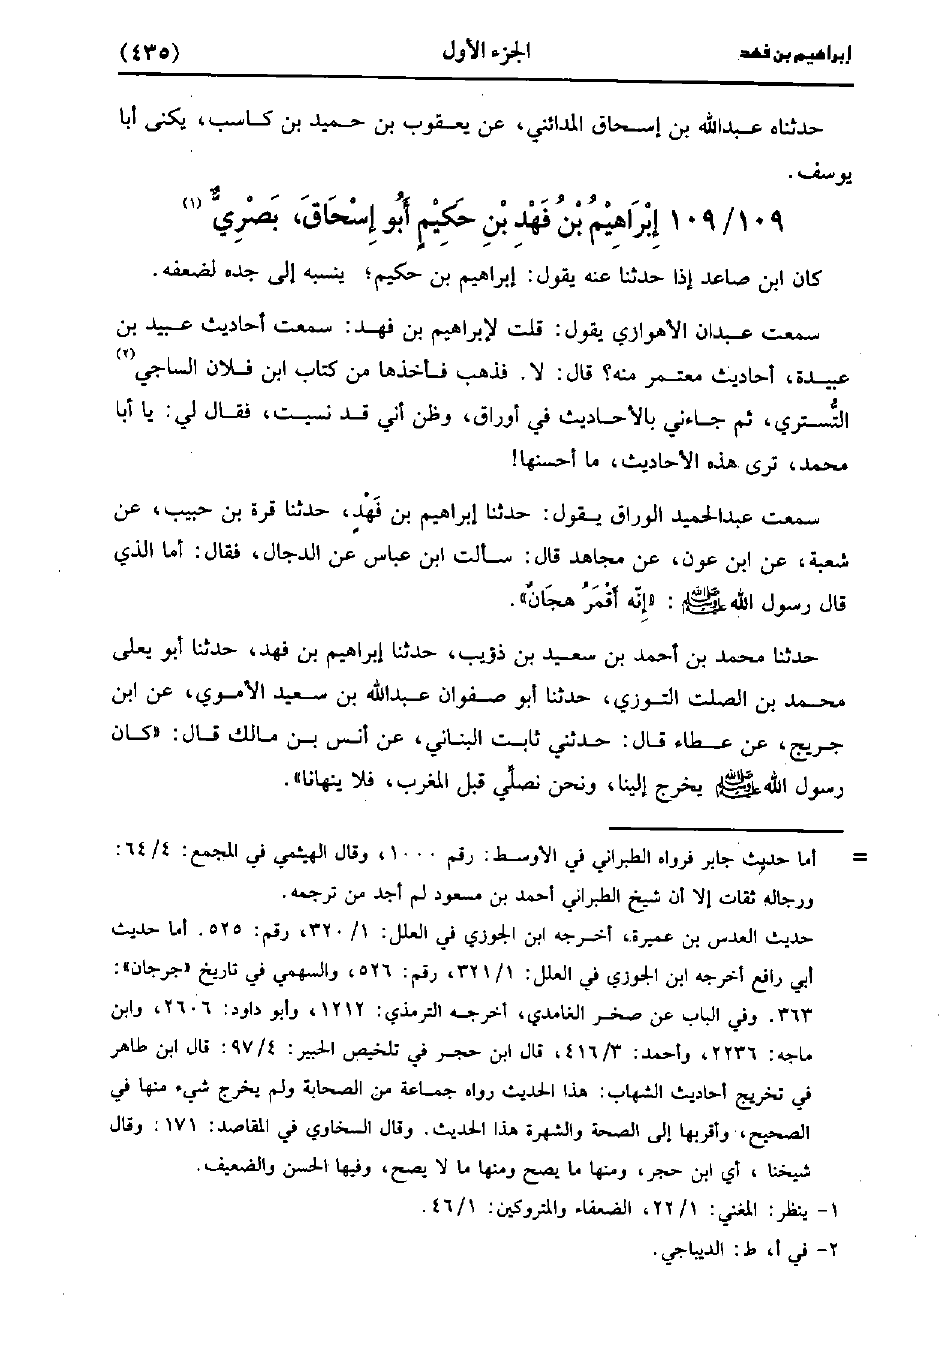 إبراهيم بن فهد الجزء الأول (٤٣٥)
حدثناه عبدالله بن إسحاق المدائني، عن يعقوب بن حميد بن كاسب، يكنى أبا
يوسف.
١٠٩/١٠٩ إِبْرَاهِيْمُ بْنُ فَهْدِ بْنِ حَكِيْمٍ أَبُو إِسْحَاقَ، بَصْرِيٌّ (١)
كان ابن صاعد إذا حدثنا عنه يقول: إبراهيم بن حكيم؛ ينسبه إلى جده لضعفه.
سمعت عبدان الأهوازي يقول: قلت لإبراهيم بن فهد: سمعت أحاديث عبيد بن
عبيدة، أحاديث معتمر منه؟ قال: لا. فذهب فأخذها من كتاب ابن فلان الساجي (٢)
التُّستري، ثم جاءني بالأحاديث في أوراق، وظن أني قد نسيت، فقال لي: يا أبا
محمد، ترى هذه الأحاديث، ما أحسنها!
سمعت عبدالحميد الوراق يقول: حدثنا إبراهيم بن فَهْدٍ، حدثنا قرة بن حبيب، عن
شعبة، عن ابن عون، عن مجاهد قال: سألت ابن عباس عن الدجال، فقال: أما الذي
قال رسول الله ﷺ : «إِنَّه أَقْمَرُ هِجَانٌ».
حدثنا محمد بن أحمد بن سعيد بن ذؤيب، حدثنا إبراهيم بن فهد، حدثنا أبو يعلى
محمد بن الصلت التوزي، حدثنا أبو صفوان عبدالله بن سعيد الأموي، عن ابن
جريج، عن عطاء قال: حدثني ثابت البناني، عن أنس بن مالك قال: «كان
رسول الله ﷺ يخرج إلينا، ونحن نصلِّي قبل المغرب، فلا ينهانا».
= أما حديث جابر فرواه الطبراني في الأوسط: رقم ١٠٠٠، وقال الهيثمي في المجمع: ٦٤/٤:
ورجاله ثقات إلا أن شيخ الطبراني أحمد بن مسعود لم أجد من ترجمه.
حديث العدس بن عميرة، أخرجه ابن الجوزي في العلل: ٣٢٠/١، رقم: ٥٢٥. أما حديث
أبي رافع أخرجه ابن الجوزي في العلل: ٣٢١/١، رقم: ٥٢٦، والسهمي في تاريخ «جرجان»:
٣٦٣. وفي الباب عن صخر الغامدي، أخرجه الترمذي: ١٢١٢، وأبو داود: ٢٦٠٦، وابن
ماجه: ٢٢٣٦، وأحمد: ٤١٦/٣، قال ابن حجر في تلخيص الحبير: ٩٧/٤: قال ابن طاهر
في تخريج أحاديث الشهاب: هذا الحديث رواه جماعة من الصحابة ولم يخرج شيء منها في
الصحيح، وأقربها إلى الصحة والشهرة هذا الحديث. وقال السخاوي في المقاصد: ١٧١: وقال
شيخنا ، أي ابن حجر، ومنها ما يصح ومنها ما لا يصح، وفيها الحسن والضعيف.
١- ينظر: المغني: ٢٢/١، الضعفاء والمتروكين: ٤٦/١.
٢- في أ، ط: الديباجي.